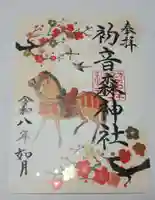 奉拝
初音森神社
令和八年如月